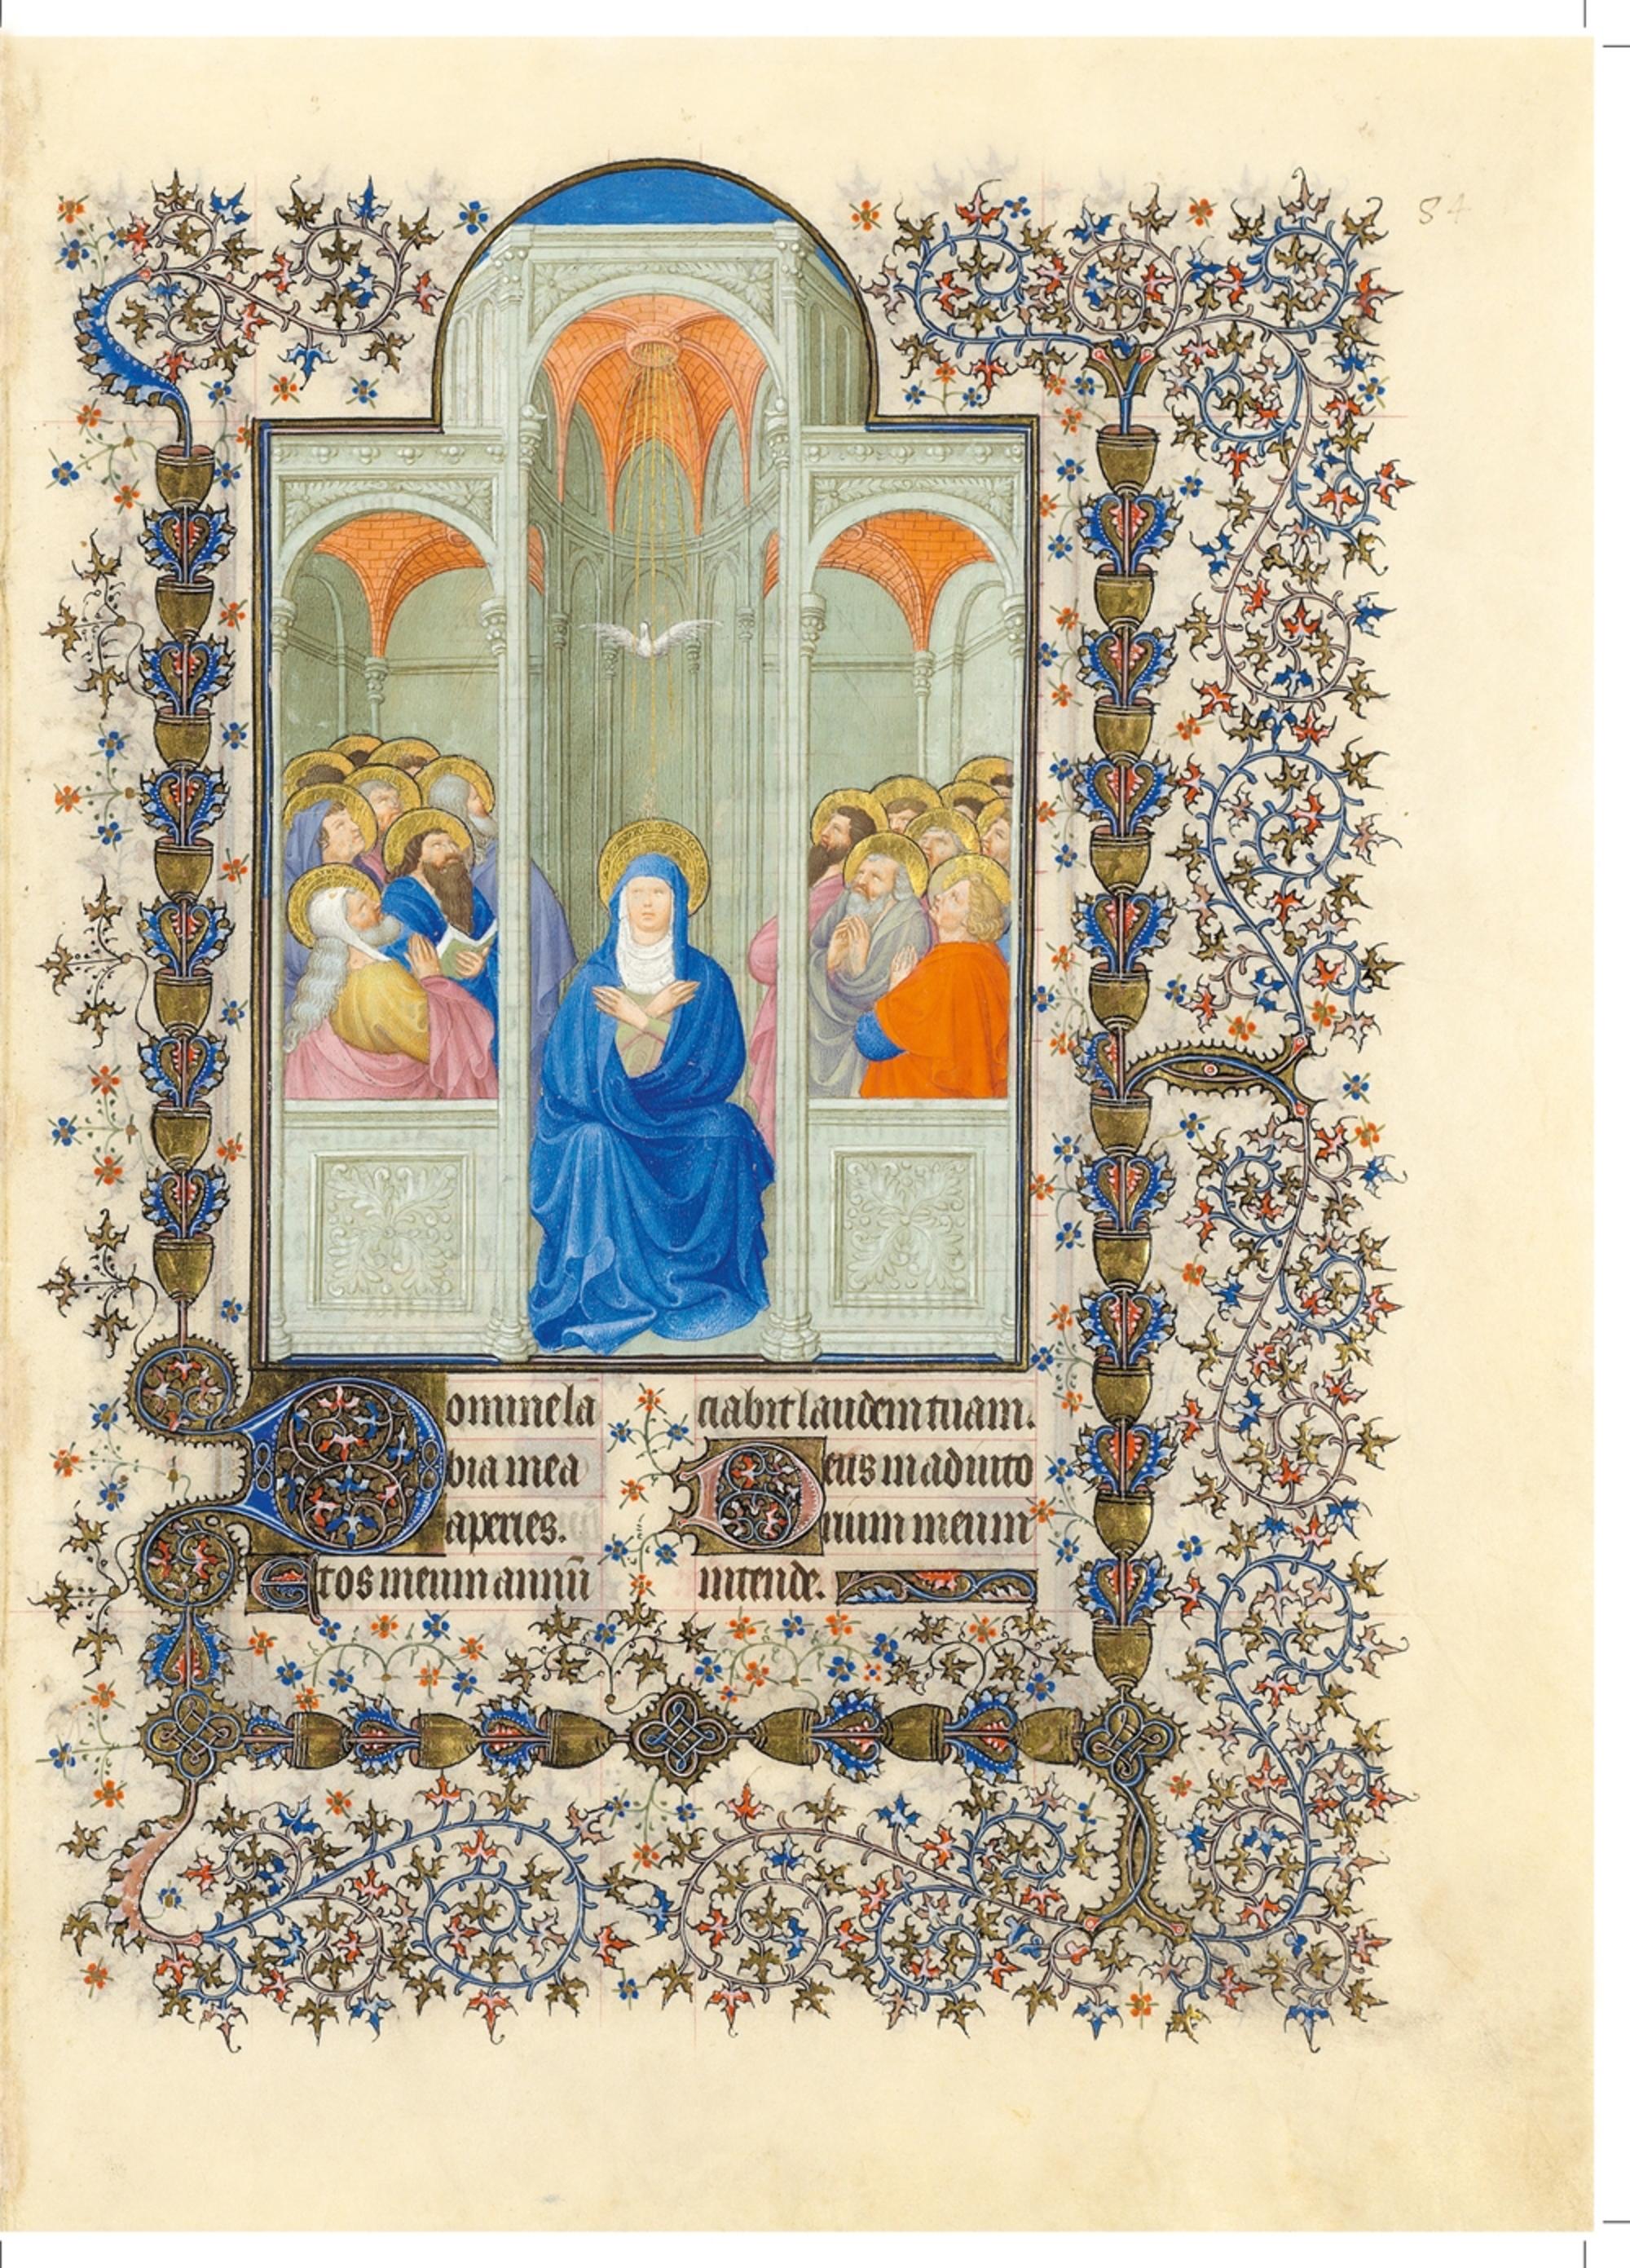 84
Domine la
bia mea
aperies.
Et os meum annū
ciabit laudem tuam.
Deus in adiuto
rium meum
intende.